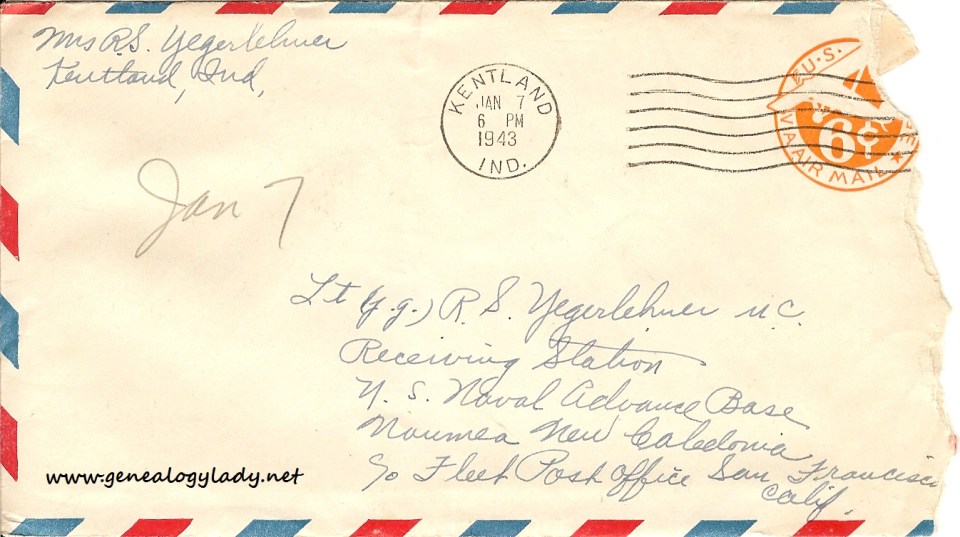 Mrs R.S. Yegerlehner
Kentland, Ind,
KENTLAND
JAN 7
6 PM
1943
IND.
U.S.
6¢
VIA AIR MAIL
Jan 7
Lt (j.g.) R. S. Yegerlehner M.C.
Receiving Station
U. S. Naval Advance Base
Noumea New Caledonia
c/o Fleet Post Office San Francisco
Calif.
www.genealogylady.net